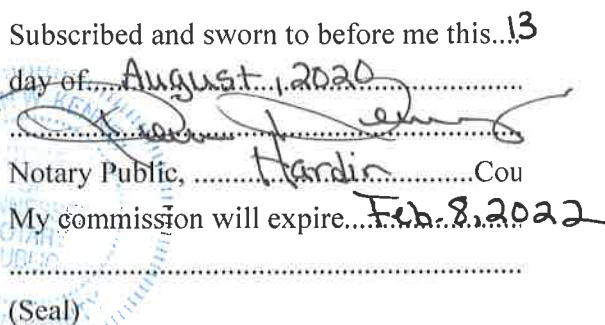 Subscribed and sworn to before me this...13
day of.....August, 2020
Notary Public, ..........Hardin..........Cou
My commission will expire....Feb. 8, 2022
(Seal)